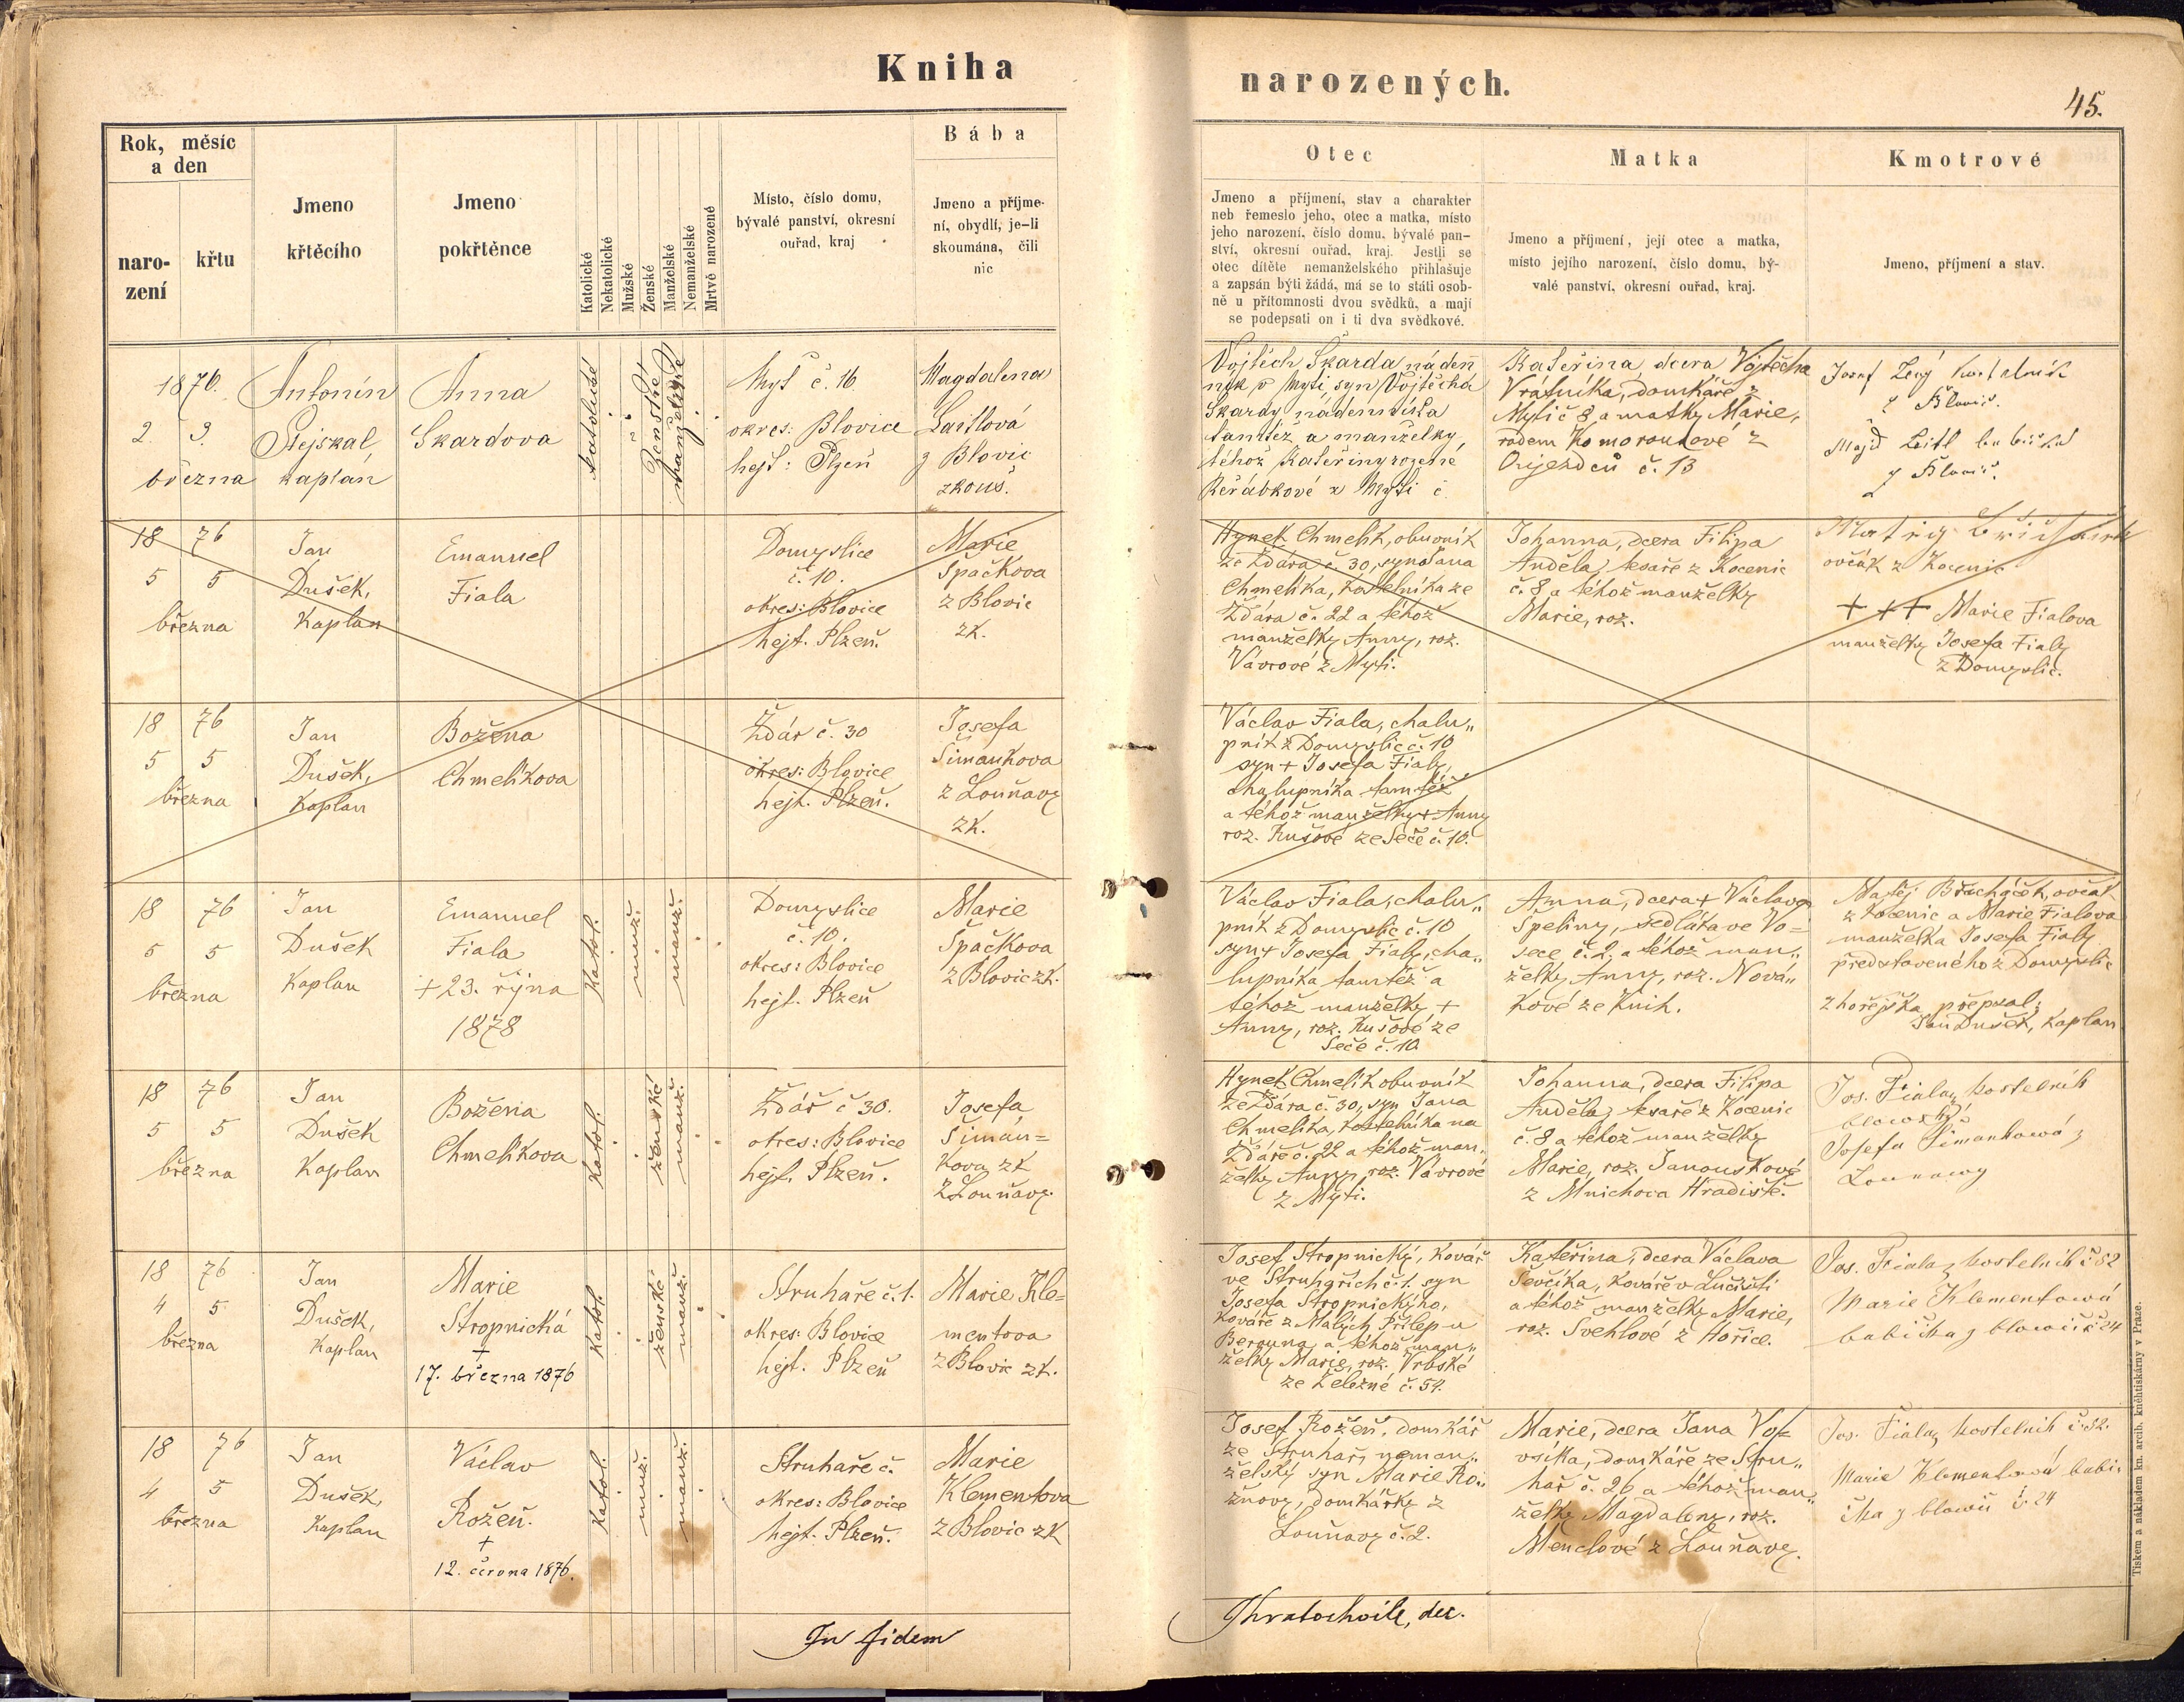 Kniha
narozených.
45.
Rok, měsíc
a den
naro-
zení
křtu
Jmeno
křtěcího
Jmeno
pokřtěnce
Katolické
Nekatolické
Mužské
Ženské
Manželské
Nemanželské
Mrtvě narozené
Místo, číslo domu,
bývalé panství, okresní
ouřad, kraj
Bába
Jmeno a příjme-
ní, obydlí, je-li
skoumána, čili
nic
Otec
Jmeno a příjmení, stav a charakter
neb řemeslo jeho, otec a matka, místo
jeho narození, číslo domu, bývalé pan-
ství, okresní ouřad, kraj. Jestli se
otec dítěte nemanželského přihlašuje
a zapsán býti žádá, má se to státi osob-
ně u přítomnosti dvou svědků, a mají
se podepsati on i ti dva svědkové.
Matka
Jmeno a příjmení, její otec a matka,
místo jejího narození, číslo domu, bý-
valé panství, okresní ouřad, kraj.
Kmotrové
Jmeno, příjmení a stav.
1876.
2. 3.
března
Antonín
Stejskal,
kaplan
Anna
Skardova
katolické
ženské
manželské
Myť č. 16
okres: Blovice
hejt: Plzeň
Magdalena
z Blovic
zkouš.
Vojtěch Škarda náden
ník v Myti, syn Vojtěcha
Škardy nádenníka
tamtéž a manželky
téhož Kateřiny rozené
Řeřábkové z Myti č.
Kateřina, dcera Vojtěcha
Vrátníka, domkáře z
Myti č 8 a matky Marie,
rodem Komorousové z
Oujezdců č. 13
Josef
z Blovic.
z Blovic.
18 76
5 5
března
Jan
Dušek,
Kaplan
Emanuel
Fiala
Domyslice
č. 10.
okres: Blovice
hejt. Plzeň.
Marie
Špačkova
z Blovic
zk.
Hynek Chmelík, obuvník
ze Ždára č. 30, syn Jana
Chmelíka, kostelníka ze
Ždára č. 22 a téhož
manželky Anny, roz.
Vávrové z Myti.
Johanna, dcera Filipa
Anděla, tesaře z Kocenic
č. 8 a téhož manželky
Marie, roz.
ovčák z Kocenic
+++ Marie Fialova
manželky Josefa Fialy
z Domyslic.
18 76
5 5
března
Jan
Dušek,
Kaplan
Božena
Chmelíkova
Ždár č. 30
okres: Blovice
hejt. Plzeň.
Josefa
Šimankova
z Louňavy
zk.
Václav Fiala, chalu„
pník z Domyslic č. 10
syn + Josefa Fialy,
chalupníka tamtéž
a téhož manželky + Anny
roz. Kušové ze Seče č. 10.
18 76
5 5
března
Jan
Dušek
Kaplan
Emanuel
Fiala
+ 23. října
1878
Katol.
muž.
manž.
Domyslice
č. 10.
okres: Blovice
hejt. Plzeň
Marie
Špačkova
z Blovic zk.
Václav Fiala, chalu„
pník z Domyslic č. 10
syn + Josefa Fialy, cha„
lupníka tamtéž a
téhož manželky +
Anny, roz. Kušové ze
Seče č. 10
Anna, dcera + Václava
Špeliny, sedláka ve Vo=
sece č. 2. a téhož man„
želky Anny, roz. Nová„
kové ze Knih.
Matěj Břicháček, ovčák
z Kocenic a Marie Fialova
manželka Josefa Fialy
představeného z Domyslic
z hořejška přepsal:
Jan Dušek, Kaplan
18 76
5 5
března
Jan
Dušek
Kaplan
Božena
Chmelíkova
Katol.
ženské
manž.
Ždář č 30.
okres: Blovice
hejt. Plzeň.
Josefa
Šiman=
kova zk
z Louňavy.
Hynek Chmelík obuvník
ze Ždára č. 30, syn Jana
Chmelíka, kostelníka na
Ždáře č. 22 a téhož man„
želky Anny, roz. Vávrové
z Myti.
Johanna, dcera Filipa
Anděla, tesaře z Kocenic
č. 8 a téhož manželky
Marie, roz. Janouškové
z Mnichova Hradiště.
Jos. Fiala, kostelník
blowský
Josefa Šimankowá z
Lounawy
18 76
4 5
března
Jan
Dušek,
Kaplan
Marie
Stropnická
+
17. března 1876
Katol.
ženské
manž.
Struhaře č. 1.
okres: Blovice
hejt. Plzeň
Marie Kle=
mentova
z Blovic zk.
Josef Stropnický, kovář
ve Struhařích č. 1. syn
Josefa Stropnického,
kováře z Malých Přílep u
Berouna a téhož man„
želky Marie, roz. Vrbské
ze Železné č. 54.
Kateřina, dcera Václava
Ševčíka, kováře v Lučišti
a téhož manželky Marie,
roz. Švehlové z Hořice.
Jos. Fiala, kostelník č 52
Marie Klementowá
babička z blowic č 24
18 76
4 5
března
Jan
Dušek,
Kaplan
Václav
Rožeň.
+
12. června 1876.
Katol.
muž.
manž.
Struhaře č.
okres: Blovice
hejt. Plzeň.
Marie
Klementova
z Blovic zk
Josef Rožeň, domkář
ze Struhař, neman„
želský syn Marie Ro„
žňovy, domkářky z
Louňavy č. 2.
Marie, dcera Jana Vo=
vsíka, domkáře ze Stru„
hař č. 26 a téhož man„
želky Magdaleny, roz.
Menclové z Louňavy.
Jos. Fiala, kostelník č. 52.
Marie Klementowá babi„
čka z blowic č. 24
In fidem
Chvatochvile, dec.
Tiskem a nákladem kn. arcib. knihtiskárny v Praze.